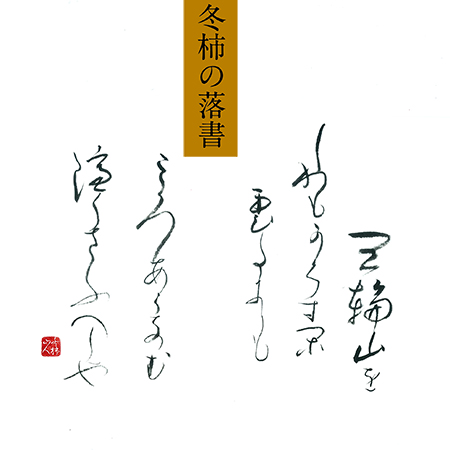 冬柿の落書
三輪山を
しかもかくす閑
雲たにも
こころあらなむ
隠くさふへしや